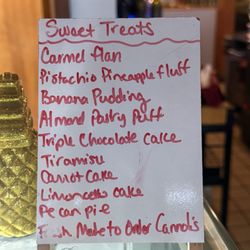 Sweet Treats
Carmel flan
Pistachio Pineapple fluff
Banana Pudding
Almond Pastry Puff
Triple Chocolate cake
Tiramisu
Carrot Cake
Limoncello cake
Pecan pie
Fresh Made to Order Cannoli's